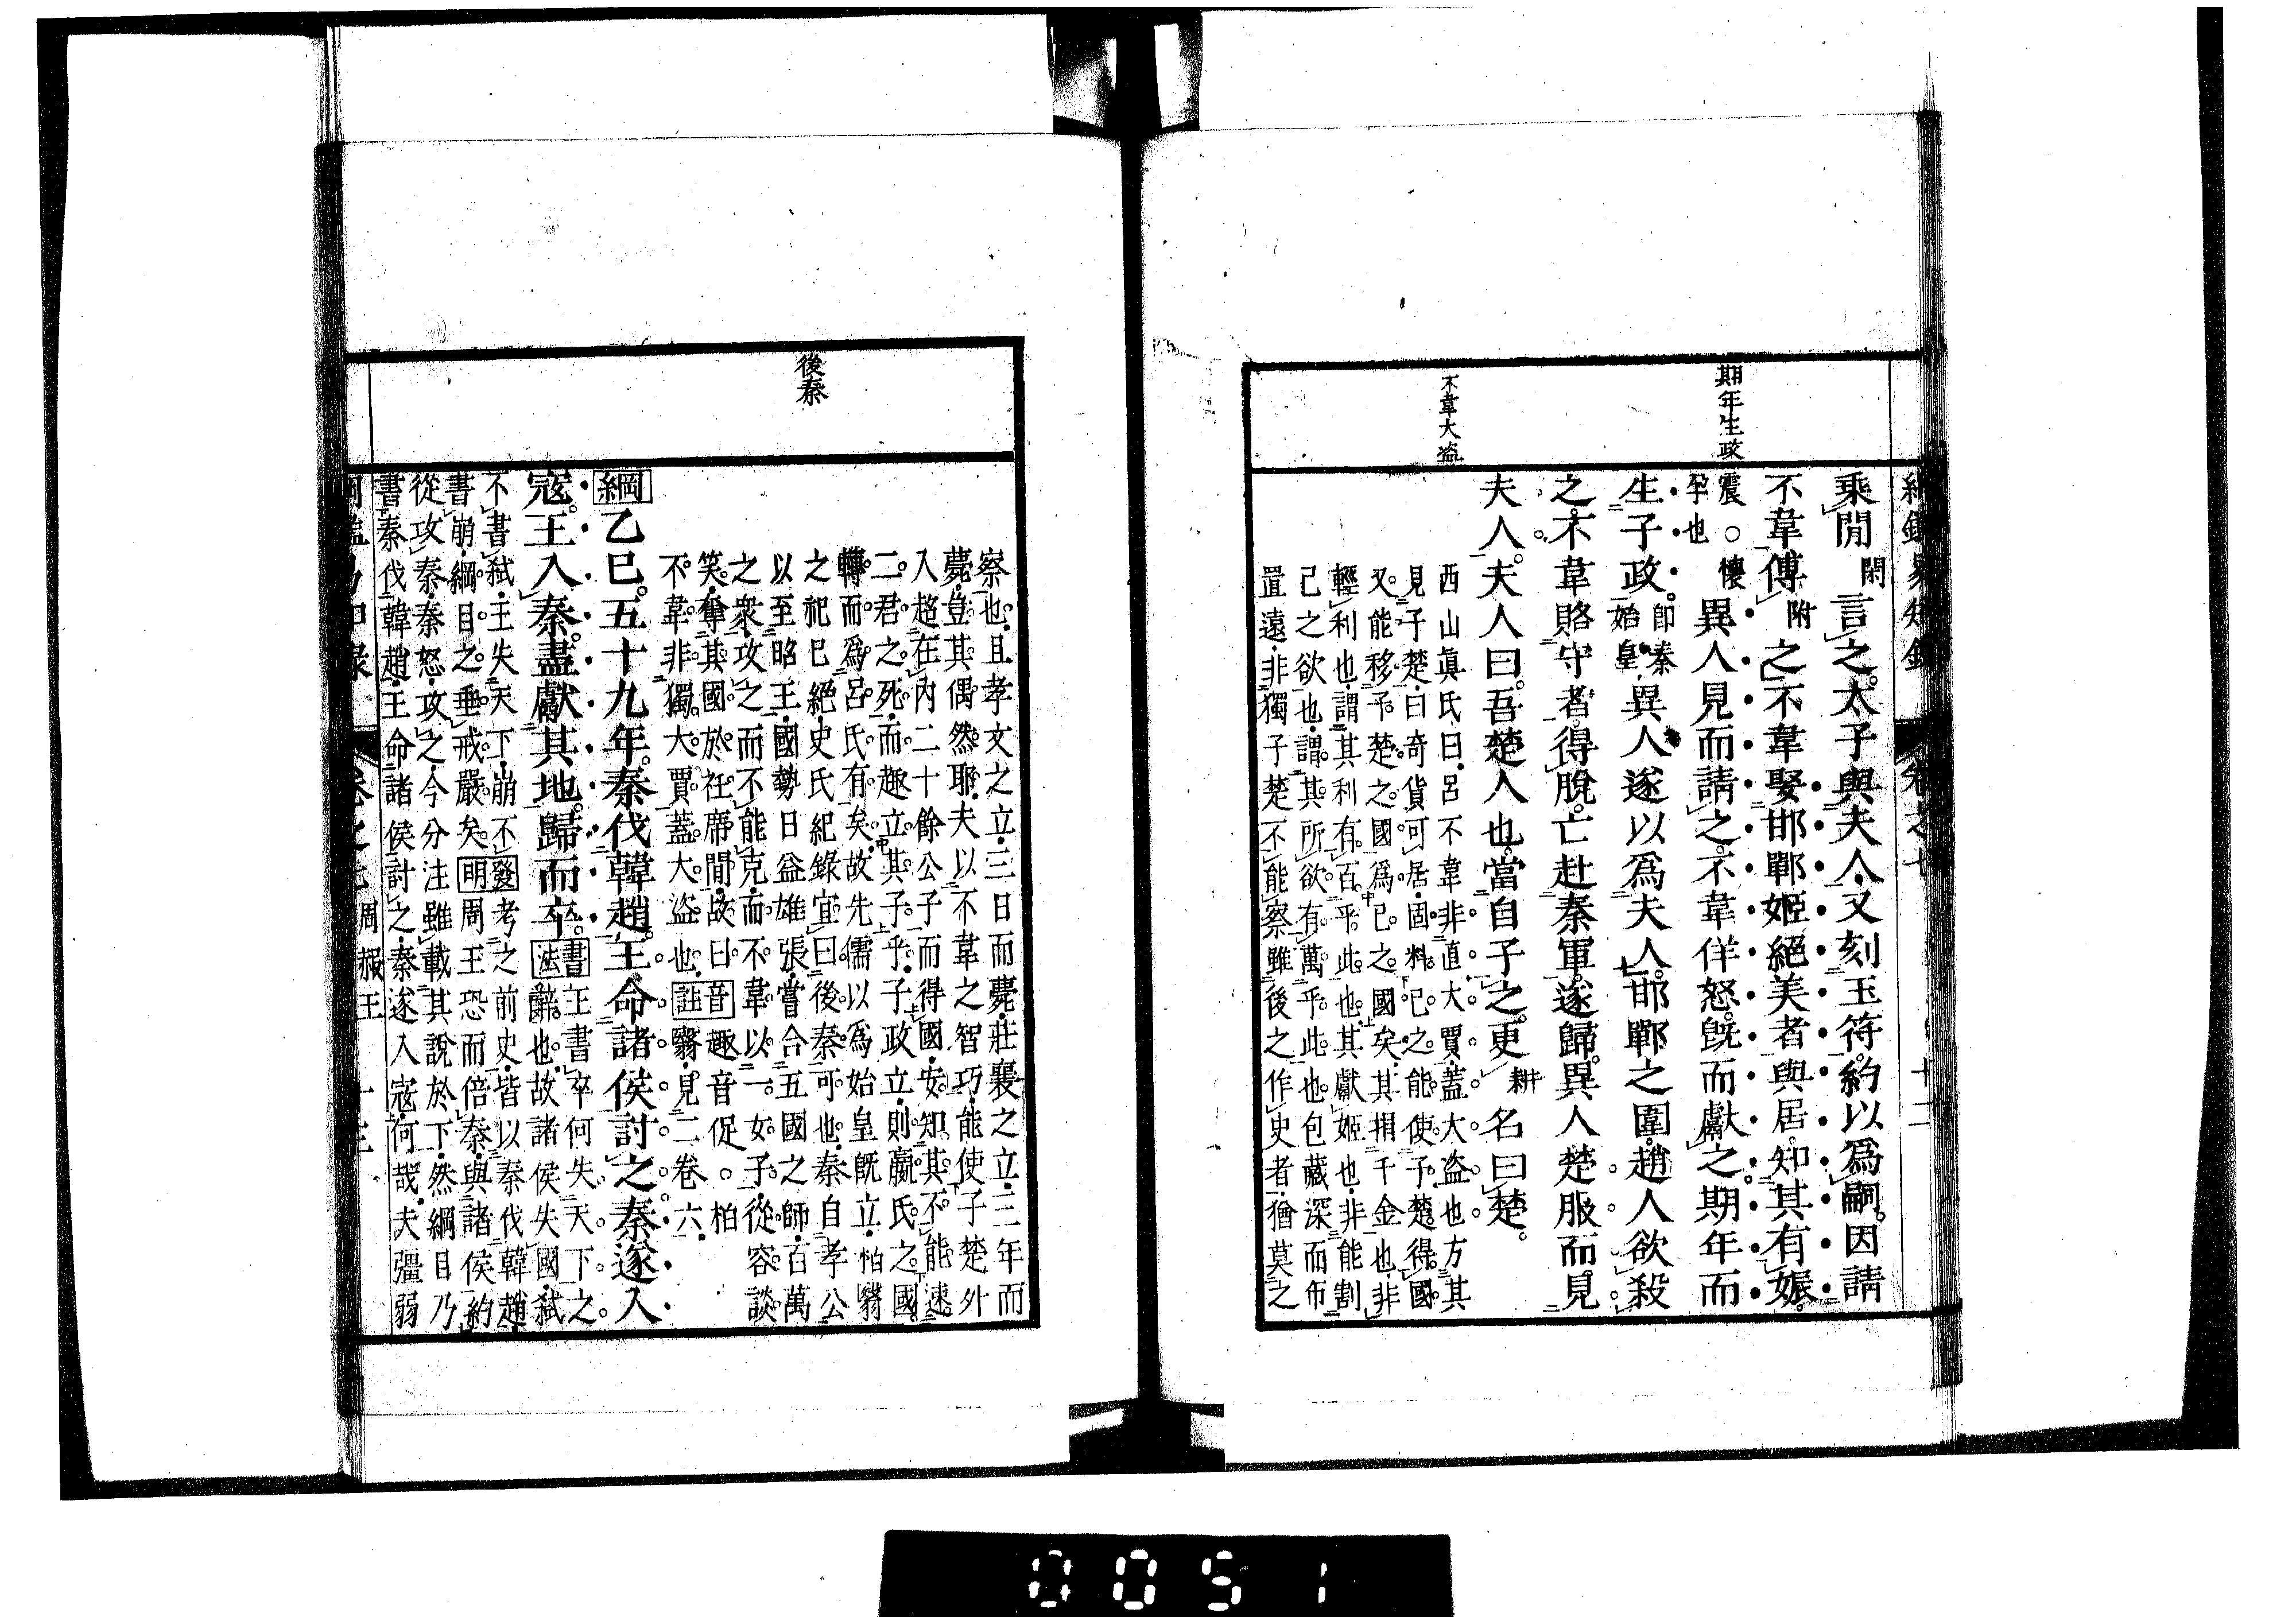 期年生政
不韋大盜
乘閒閑言之太子與夫人又刻玉符約以爲嗣因請
不韋傅附之不韋娶邯鄲姬絕美者與居知其有娠
震○懷孕也異人見而請之不韋佯怒旣而獻之期年而
生子政即秦始皇異人遂以爲夫人邯鄲之圍趙人欲殺
之不韋賂守者得脫亡赴秦軍遂歸異人楚服而見
夫人夫人曰吾楚人也當自子之更耕名曰楚
西山眞氏曰呂不韋非直大賈蓋大盜也方其
見子楚曰奇貨可居固料己之能使子楚得國
又能移予楚之國爲己之國矣其捐千金也非
輕利也謂其利有百乎此也其獻姬也非能割
己之欲也謂其所欲有萬乎此也包藏深而布
置遠非獨子楚不能察雖後之作史者猶莫之
後秦
察也且孝文之立三日而薨莊襄之立三年而
薨豈其偶然耶夫以不韋之智巧能使子楚外
入趙在內二十餘公子而得國安知其不能速
二君之死而趣立其子乎子政立則嬴氏之國
轉而爲呂氏有矣故先儒以爲始皇旣立柏翳
之祀已絕史氏紀錄宜曰後秦可也秦自孝公
以至昭王國勢日益雄張嘗合五國之師百萬
之衆攻之而不能克而不韋以一女子從容談
笑奪其國於衽席閒故曰
不韋非獨大賈蓋大盜也
音趣音促○柏
註翳見二卷六
綱乙巳五十九年秦伐韓趙王命諸侯討之秦遂入
寇王入秦盡獻其地歸而卒
書王書卒何失天下之
法辭也故諸侯失國弒
不書弒王失天下崩不
書崩綱目之垂戒嚴矣
發考之前史皆以秦伐韓趙
明周王恐而倍秦與諸侯約
從攻秦秦怒攻之今分注雖載其說於下然綱目乃
書秦伐韓趙王命諸侯討之秦遂入寇何哉夫彊弱
周赧王
0051